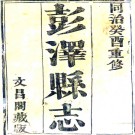 同治癸酉重修
彭澤縣志
文昌閣藏版